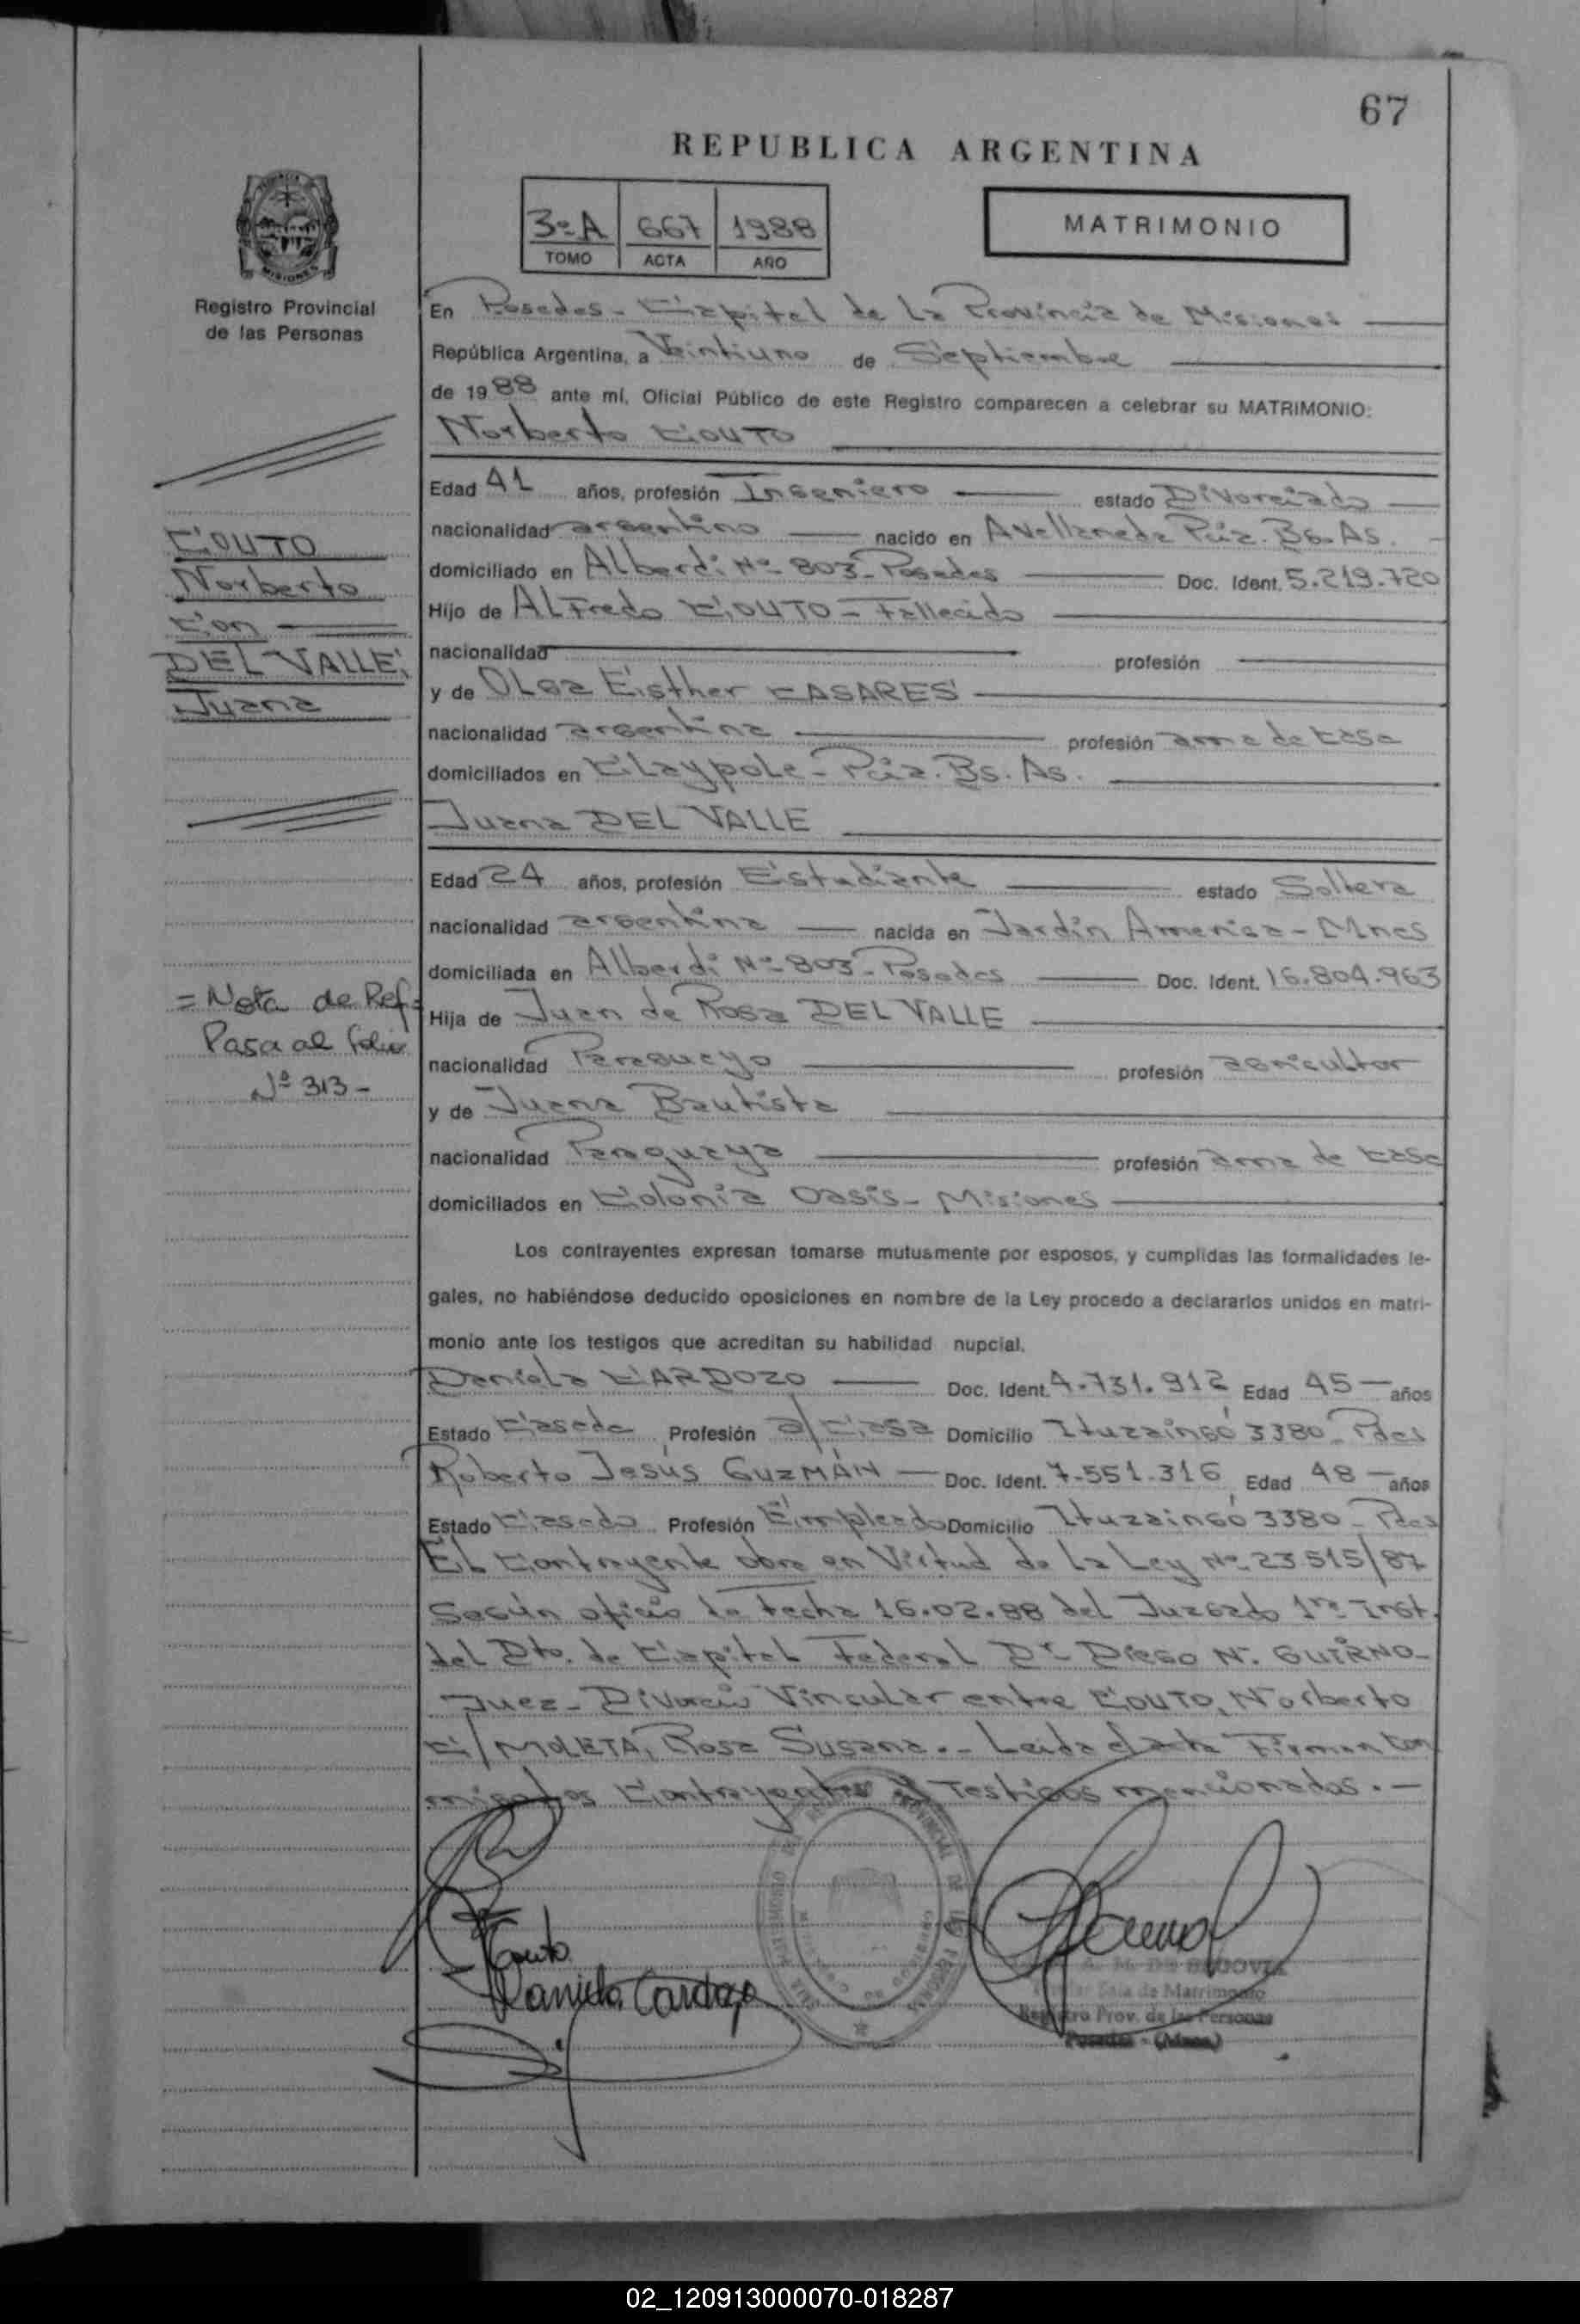 67
REPUBLICA ARGENTINA
3ºA 667 1988
TOMO ACTA AÑO
MATRIMONIO
MISIONES
Registro Provincial
de las Personas
En Posadas - Capital de La Provincia de Misiones
República Argentina, a Veintiuno de Septiembre
de 1988 ante mí, Oficial Público de este Registro comparecen a celebrar su MATRIMONIO:
Norberto COUTO
Edad 41 años, profesión Ingeniero estado Divorciado
nacionalidad argentino nacido en Avellaneda Pcia. Bs. As.
domiciliado en Alberdi Nº 803 - Posadas Doc. Ident. 5.219.720
Hijo de ALFredo COUTO - Fallecido
nacionalidad profesión
y de OLga Esther CASARES
nacionalidad argentina profesión ama de casa
domiciliados en Claypole - Pcia. Bs. As.
Juana DEL VALLE
Edad 24 años, profesión Estudiante estado Soltera
nacionalidad argentina nacida en Jardín America - Mnes
domiciliada en Alberdi Nº 803 - Posadas Doc. Ident. 16.804.963
Hija de Juan de Rosa DEL VALLE
nacionalidad Paraguayo profesión agricultor
y de Juana Bautista
nacionalidad Paraguaya profesión ama de casa
domiciliados en Colonia Oasis - Misiones
Los contrayentes expresan tomarse mutuamente por esposos, y cumplidas las formalidades le-
gales, no habiéndose deducido oposiciones en nombre de la Ley procedo a declararlos unidos en matri-
monio ante los testigos que acreditan su habilidad nupcial.
Daniela CARDOZO Doc. Ident. 4.731.912 Edad 45 años
Estado Casada Profesión a/Casa Domicilio Ituzaingó 3380 - Pdas
Roberto Jesús GUZMÁN Doc. Ident. 7.551.316 Edad 48 años
Estado Casado Profesión Empleado Domicilio Ituzaingó 3380 - Pdas
EL Contrayente obra en Virtud de La Ley Nº 23.515/87
Según oficio de Fecha 16.02.88 del Juzgado 1ra Inst.
del Dto. de Capital Federal Dr Diego N.
Juez - Divorcio Vincular entre COUTO, Norberto
C/ MOLETA, Rosa Susana. - Leida el acta Firman con
migo los Contrayentes y Testigos mencionados. -
COUTO
Norberto
Con
DEL VALLE,
Juana
= Nota de Ref =
Pasa al folio
Nº 313 -
Couto
Daniela Cardozo
A. M. DE SEGOVIA
Sala de Matrimonio
Registro Prov. de las Personas
Posadas - (Mnes.)
02_120913000070-018287